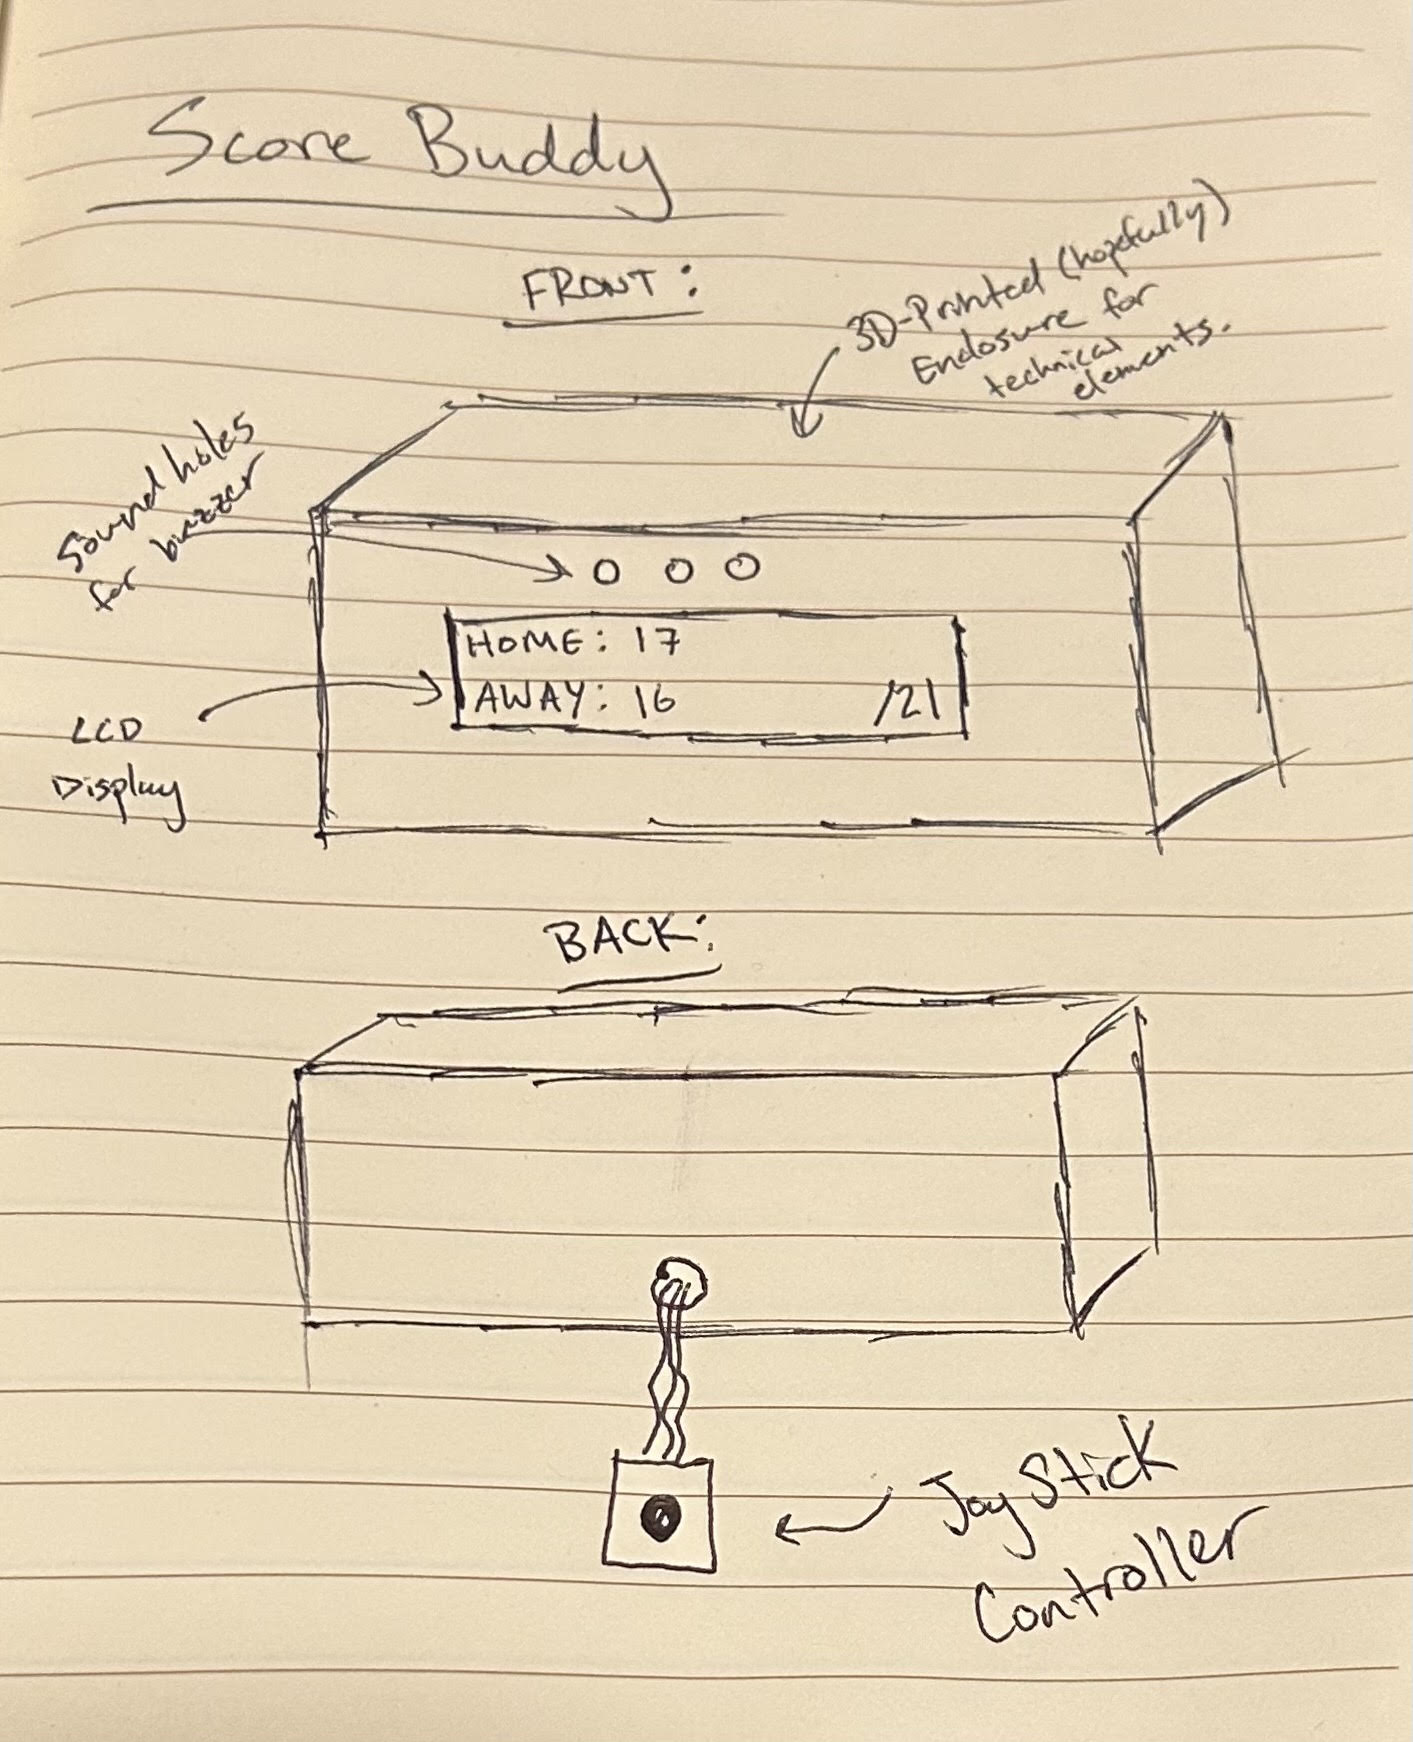 Score Buddy
FRONT:
3D-Printed (hopefully)
Enclosure for
technical
elements.
Sound holes
for buzzer
HOME: 17
AWAY: 16 /21
LCD
Display
BACK:
JoyStick
Controller